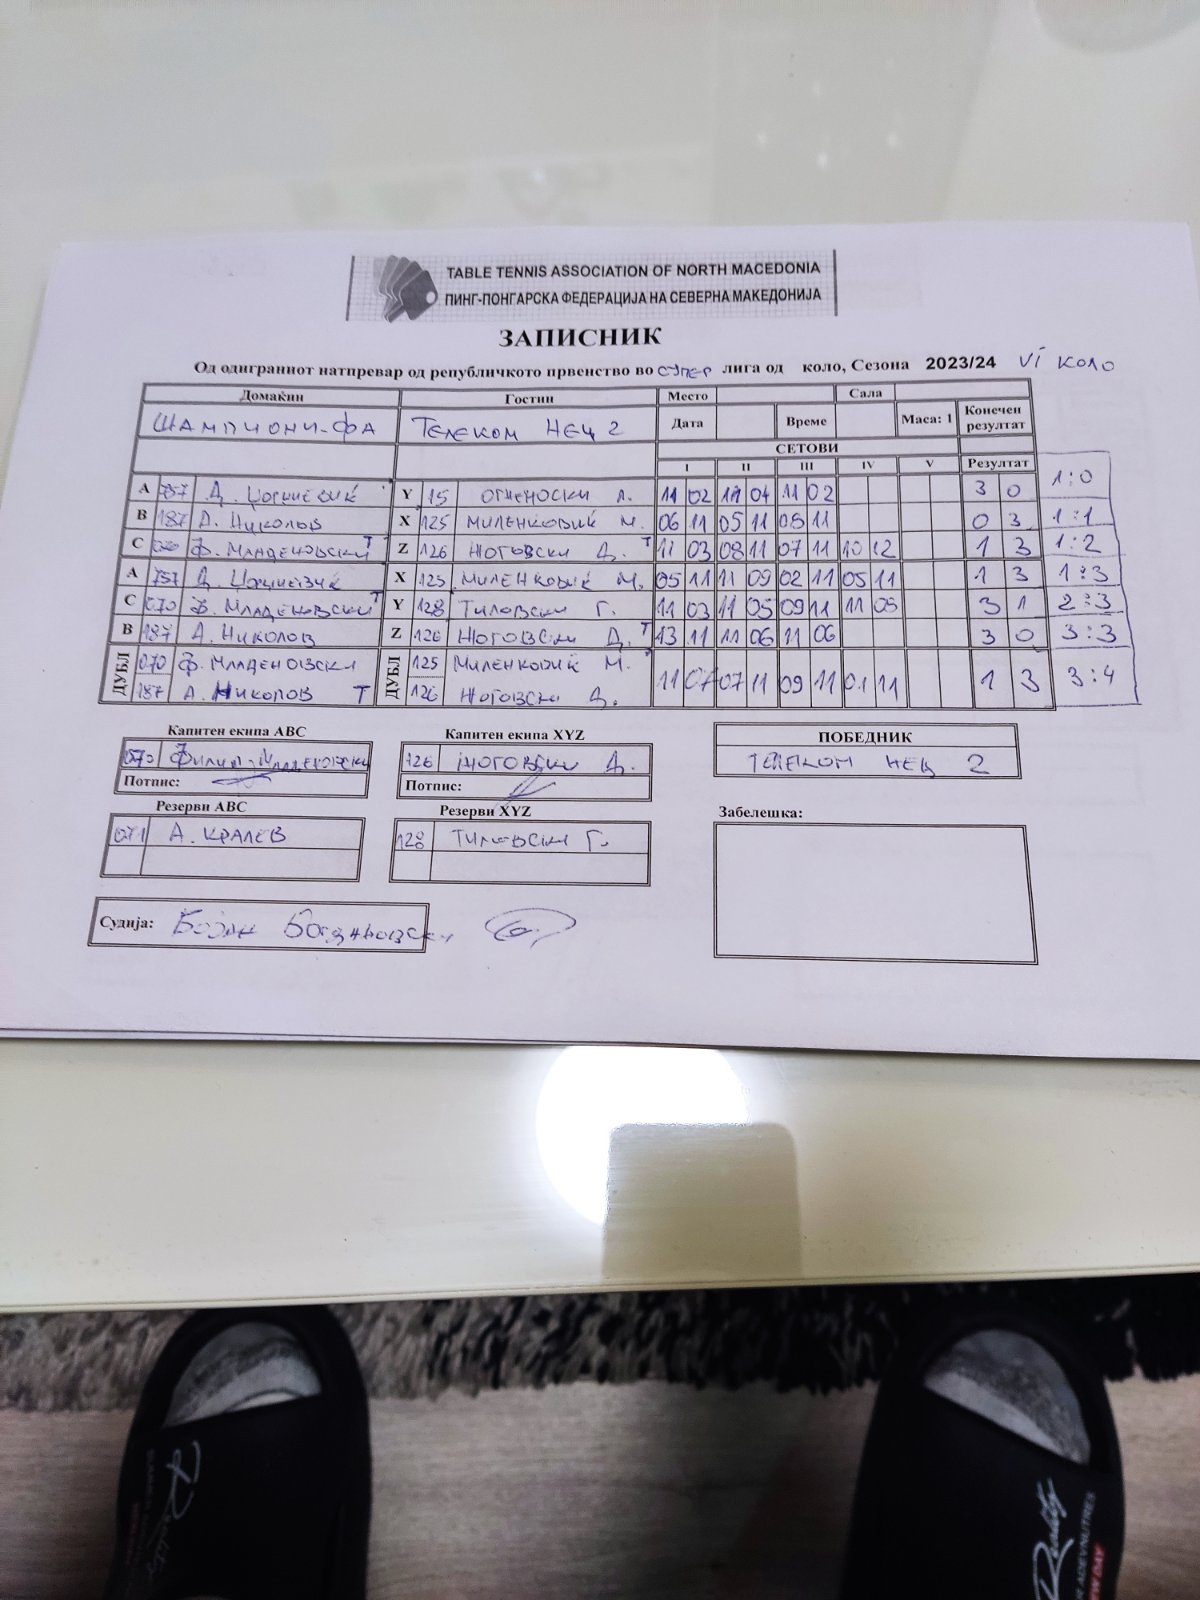 TABLE TENNIS ASSOCIATION OF NORTH MACEDONIA
ПИНГ-ПОНГАРСКА ФЕДЕРАЦИЈА НА СЕВЕРНА МАКЕДОНИЈА
ЗАПИСНИК
Од одиграниот натпревар од републичкото првенство во СУПЕР лига од коло, Сезона 2023/24 VI КОЛО
Домаќин Гостин Место Сала
ШАМПИОНИ-ФА ТЕЛЕКОМ НЕЦ 2 Дата Време Маса: 1 Конечен резултат
СЕТОВИ
I II III IV V Резултат
A 757 Д. Y 15 ОГНЕНОСКИ Л. 11 02 11 04 11 02 3 0 1:0
B 187 А. НИКОЛОВ X 125 МИЛЕНКОВИЌ М. 06 11 05 11 08 11 0 3 1:1
C 070 Ф. МЛАДЕНОВСКИ Т Z 126 ЖОГОВСКИ Д. Т 11 03 08 11 07 11 10 12 1 3 1:2
A 757 Д. X 125 МИЛЕНКОВИЌ М. 05 11 11 09 02 11 05 11 1 3 1:3
C 070 Ф. МЛАДЕНОВСКИ Т Y 128 ТИЛОВСКИ Г. 11 03 11 05 09 11 11 08 3 1 2:3
B 187 А. НИКОЛОВ Z 126 ЖОГОВСКИ Д. Т 13 11 11 06 11 06 3 0 3:3
ДУБЛ 070 Ф. МЛАДЕНОВСКИ ДУБЛ 125 МИЛЕНКОВИЌ М. 11 07 07 11 09 11 01 11 1 3 3:4
187 А. НИКОЛОВ Т 126 ЖОГОВСКИ Д.
Капитен екипа ABC Капитен екипа XYZ ПОБЕДНИК
070 ФИЛИП МЛАДЕНОВСКИ 126 ЖОГОВСКИ Д. ТЕЛЕКОМ НЕЦ 2
Потпис: Потпис:
Резерви ABC Резерви XYZ Забелешка:
071 А. КРАЛЕВ 128 ТИЛОВСКИ Г.
Судија: Бојан Богдановски
Reality
Reality
NEW DAY